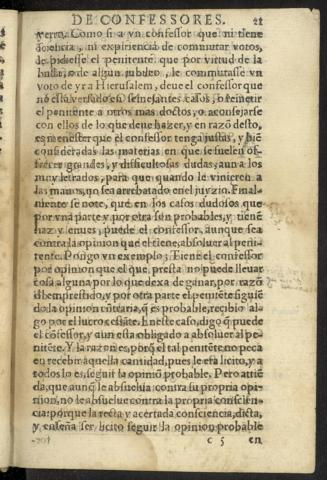 DE CONFESSORES. 21
yerro. Como si a vn confessor que ni tiene
q̃ciencia, ni expiriencia de commutar votos,
le pidiesse el penitente que por virtud de la
bulla, o de algun jubileo, le commutasse vn
voto de yr a Hierusalem, deue el confessor que
no està versado en semejantes casos, o remetir
el penitente a otros mas doctos, o aconsejarse
con ellos de lo que deue hazer, y en razõ desto,
es menester que el confessor tenga justas, y biẽ
consideradas las materias en que se suelen of-
frecer grandes, y difficultosas dudas, aun a los
muy letrados, para que quando le vinieren a
las manos, no sea arrebatado en el juyzio. Final-
mente se note, que en los casos dudosos que
por vna parte y por otra son probables, y tienẽ
haz y enues, puede el confessor, aunque sea
contra la opinion que el tiene, absoluer al peni-
tente. Põgo vn exemplo: Tiene el confessor
por opinion que el que presta no puede lleuar
cosa alguna por lo que dexa de ganar, por razõ
d̃l emprestido, y por otra parte el penitẽte siguiẽ
do la opinion cõtraria, q̃ es probable, recibio al-
go por el lucro cessãte. En este caso, digo q̃ puede
el cõfessor, y aun està obligado a absoluer al pe-
nitẽte. Y la razon es, porq̃ el tal penitẽte no peca
en recebir aquella cantidad, pues le era licito, y a
todos lo es, seguir la opiniõ probable. Pero atiẽ
da, que aunq̃ le absuelua contra su propria opi-
nion, no le absuelue contra la propria conscien-
cia: porque la recta y acertada consciencia, dicta,
y enseña ser licito seguir la opinion probable
C 5 en